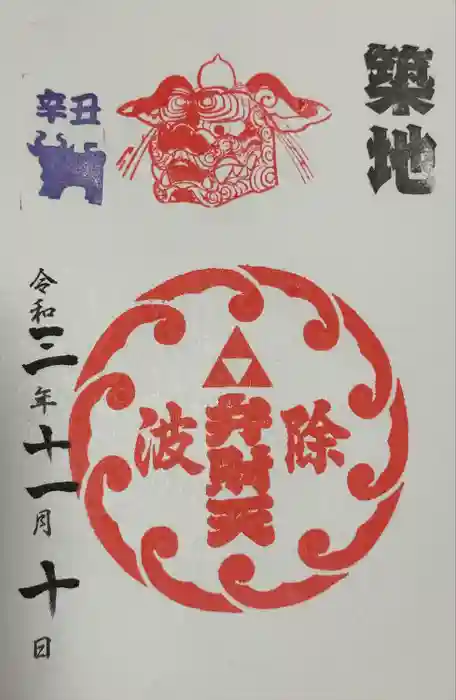 築地
辛丑
波除
弁財天
令和三年十一月十日